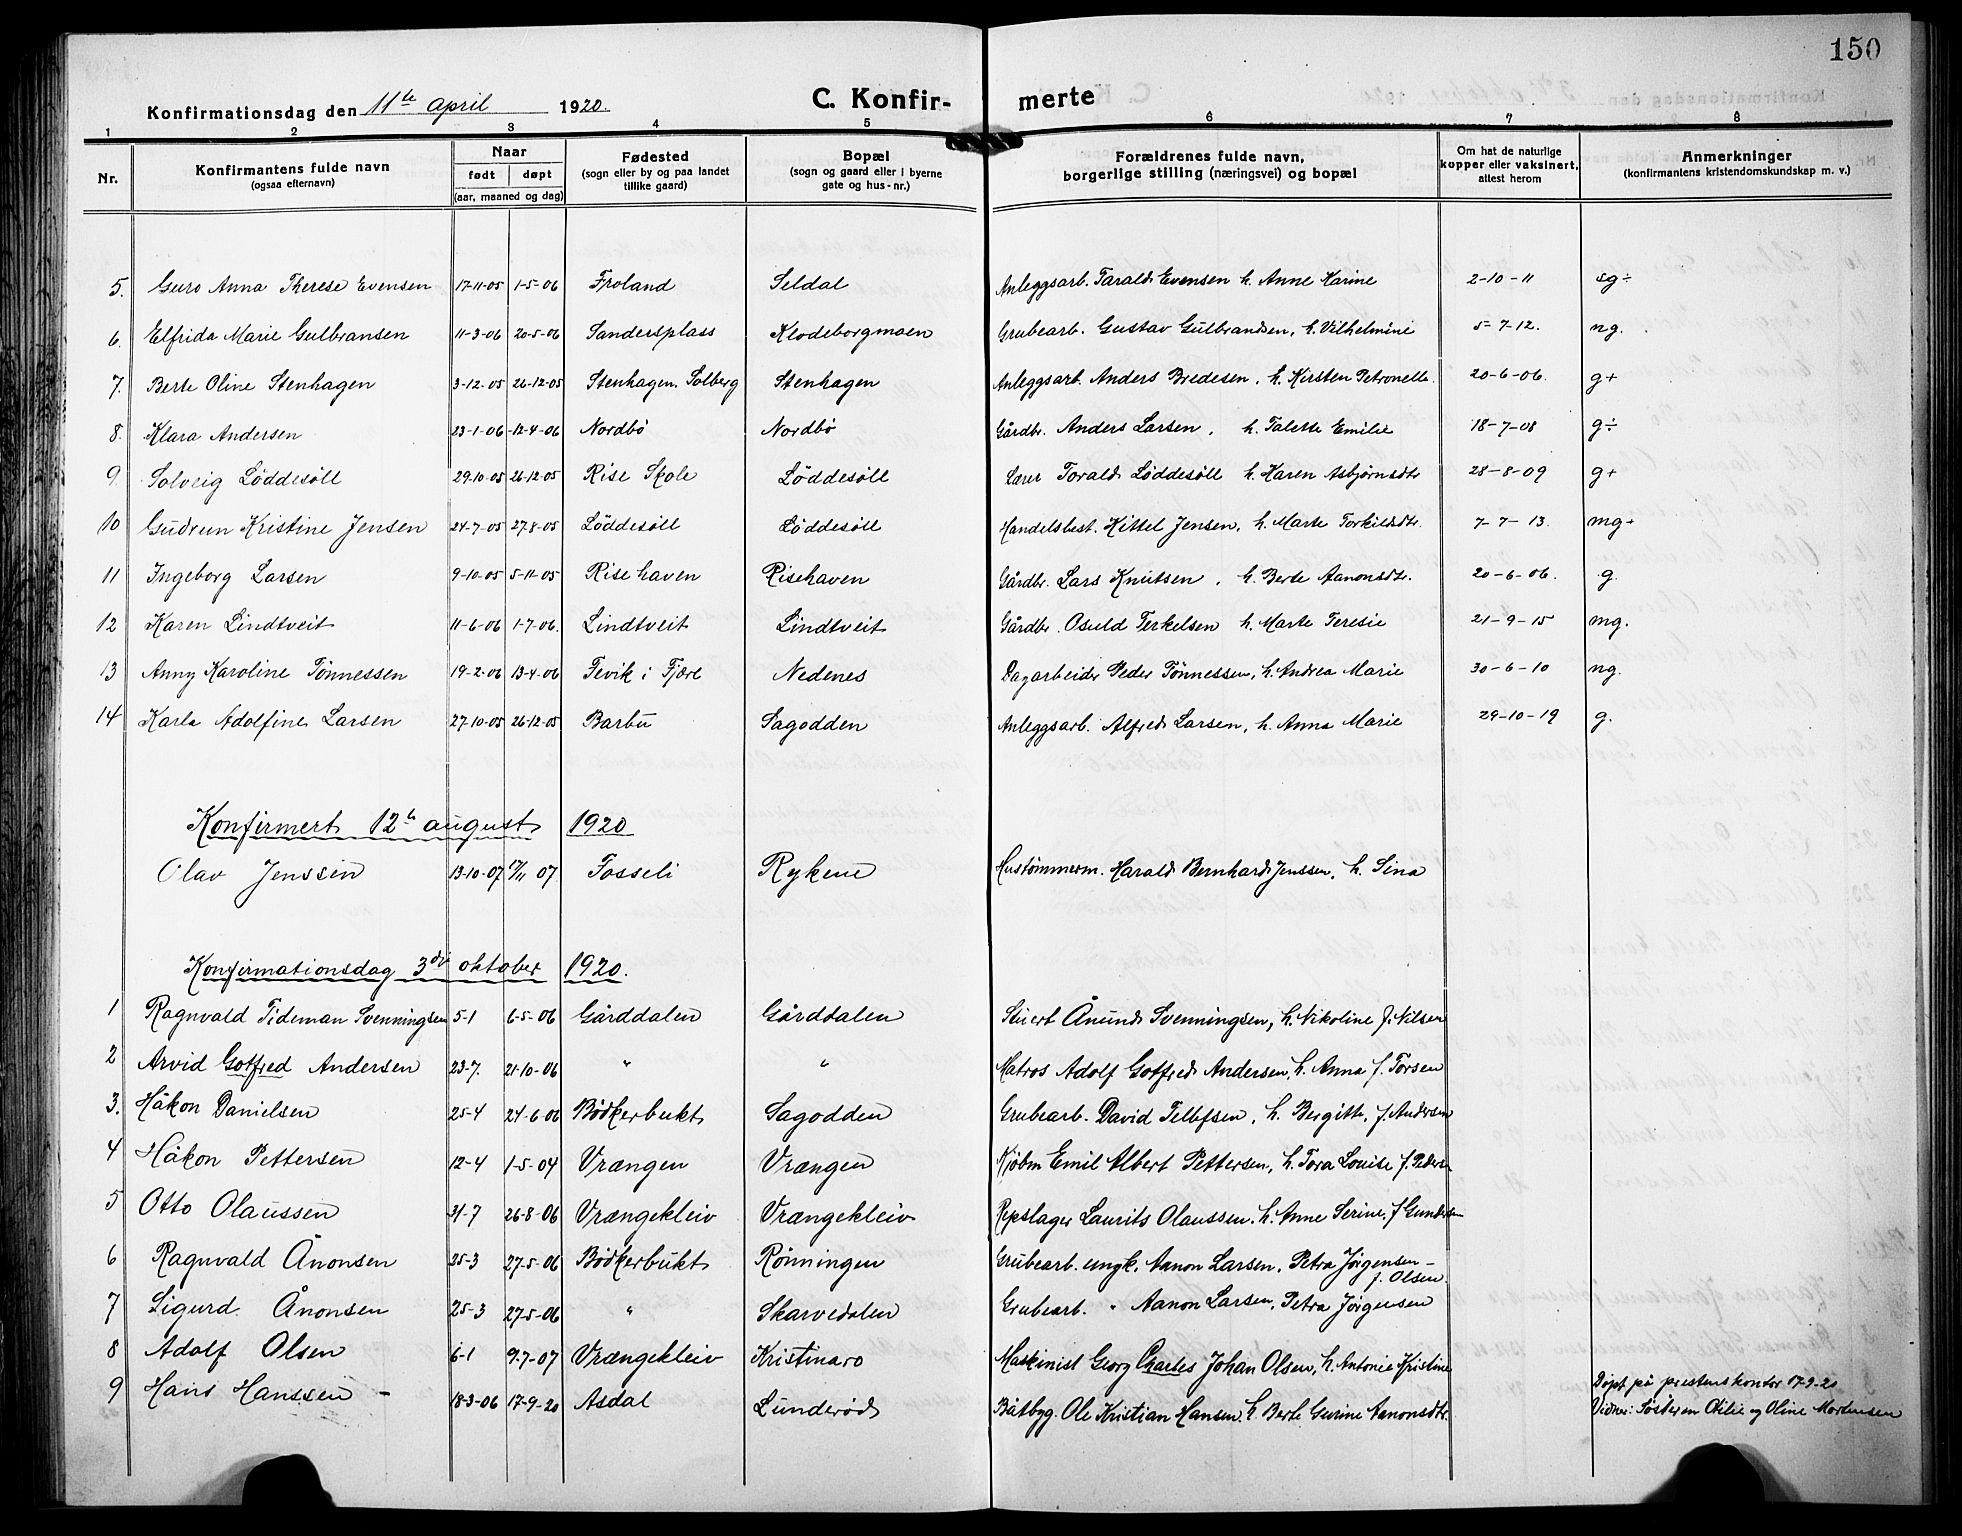 150
Konfirmationsdag den 11te april 1920. C. Konfir- merte
1 2 3 4 5 6 7 8
Nr. Konfirmantens fulde navn (ogsaa efternavn) Naar født døpt (aar, maaned og dag) Fødested (sogn eller by og paa landet tillike gaard) Bopæl (sogn og gaard eller i byerne gate og hus-nr.) Forældrenes fulde navn, borgerlige stilling (næringsvei) og bopæl Om hat de naturlige kopper eller vaksinert, attest herom Anmerkninger (konfirmantens kristendomskundskap m. v.)
5. Guro Anna Therese Evensen 17-11-05 1-5-06 Froland Seldal Anleggsarb. Tarald Evensen h. Anne Karine 2-10-11 sg÷
6. Elfrida Marie Gulbransen 11-3-06 20-5-06 Sandersplass Klodeborgmoen Grubearb. Gustav Gulbrandsen, h. Vilhelmine 5-7-12. ng.
7. Berte Oline Stenhagen 3-12-05 26-12-05 Stenhagen. Solberg Stenhagen Anleggsarb. Anders Bredesen, h. Kirsten Petronelle. 20-6-06. g+
8. Klara Andersen 23-1-06 12-4-06 Nordbö Nordbö Gårdbr. Anders Larsen, h. Talette Emilie 18-7-08 g÷
9. Solveig Løddesöll 29-10-05 26-12-05 Rise Skole Løddesöll Lærer Torald Løddesöll h. Karen Asbjørnsdtr 28-8-09 g+
10 Gudrun Kristine Jensen 24-7-05 27-8-05 Löddesöll Löddesöll Handelsbest. Kittel Jensen, h. Marte Torkildsdtr. 7-7-13. mg+
11 Ingeborg Larsen 9-10-05 5-11-05 Risehaven Risehaven Gårdbr. Lars Knutsen, h. Berte Aanonsdtr. 20-6-06. g.
12 Karen Lindtveit 11-6-06 1-7-06. Lindtveit Lindtveit Gårdbr. Osuld Terkelsen h. Marte Teresie 21-9-15 mg.
13 Anny Karoline Tönnessen 19-2-06 13-4-06 Fevik i Fjære Nedenes Dagarbeider Peder Tönnessen, h. Andrea Marie 30-6-10 ng.
14 Karla Adolfine Larsen 27-10-05 26-12-05 Barbu Sagodden Anleggsarb. Alfred Larsen, h. Anna Marie 29-10-19 g.
Konfirmert 12te august 1920
Olav Jenssen 13-10-07 17/11 07 Fosseli Rykene Hustømmerm. Harald Bernhard Jenssen, h. Sina
Konfirmationsdag 3die oktober 1920.
1 Ragnvald Tideman Svenningsen 5-1 6-5-06 Gårddalen Gårddalen Stuert Ånund Svenningsen, h. Nikoline f. Nilsen
2 Arvid Gotfred Andersen 23-7. 21-10-06 " " Matros Adolf Gotfred Andersen, h. Anna f. Torsen
3. Håkon Danielsen 25-4 24-6-06 Bödkerbukt Sagodden Grubearb. David Tellefsen, h. Bergitte, f. Andersen
4 Håkon Pettersen 12-4 1-5-04 Vrængen Vrængen Kjöbm Emil Albert Pettersen, h. Tora Louise f. Peders
5 Otto Olaussen 31-7 26-8-06 Vrængekleiv Vrængekleiv Repslager Laurits Olaussen, h. Anne Serine, f Gundersen
6 Ragnvald Ånonsen 25-3 27-5-06 Bödkerbukt Rönningen Grubearb. ungk. Aanon Larsen, Petra Jörgensen - f. Olsen.
7 Sigurd Ånonsen 25-3 27-5-06 " Skarvedalen Grubearb. " Aanon Larsen, Petra Jörgensen
8 Adolf Olsen 6-1 9-7-07 Vrængekleiv Kristinaro Maskinist Georg Charles Johan Olsen, h. Antonie Kristine
9 Hans Hanssen - 18-3-06 17-9-20 Asdal Lunderød Båtbyg. Ole Kristian Hansen, h. Berte Gurine Aanonsdtr. Döpt på prestens kontor 17-9-20
Vidner: Søstrene Otilie og Oline Mortensen